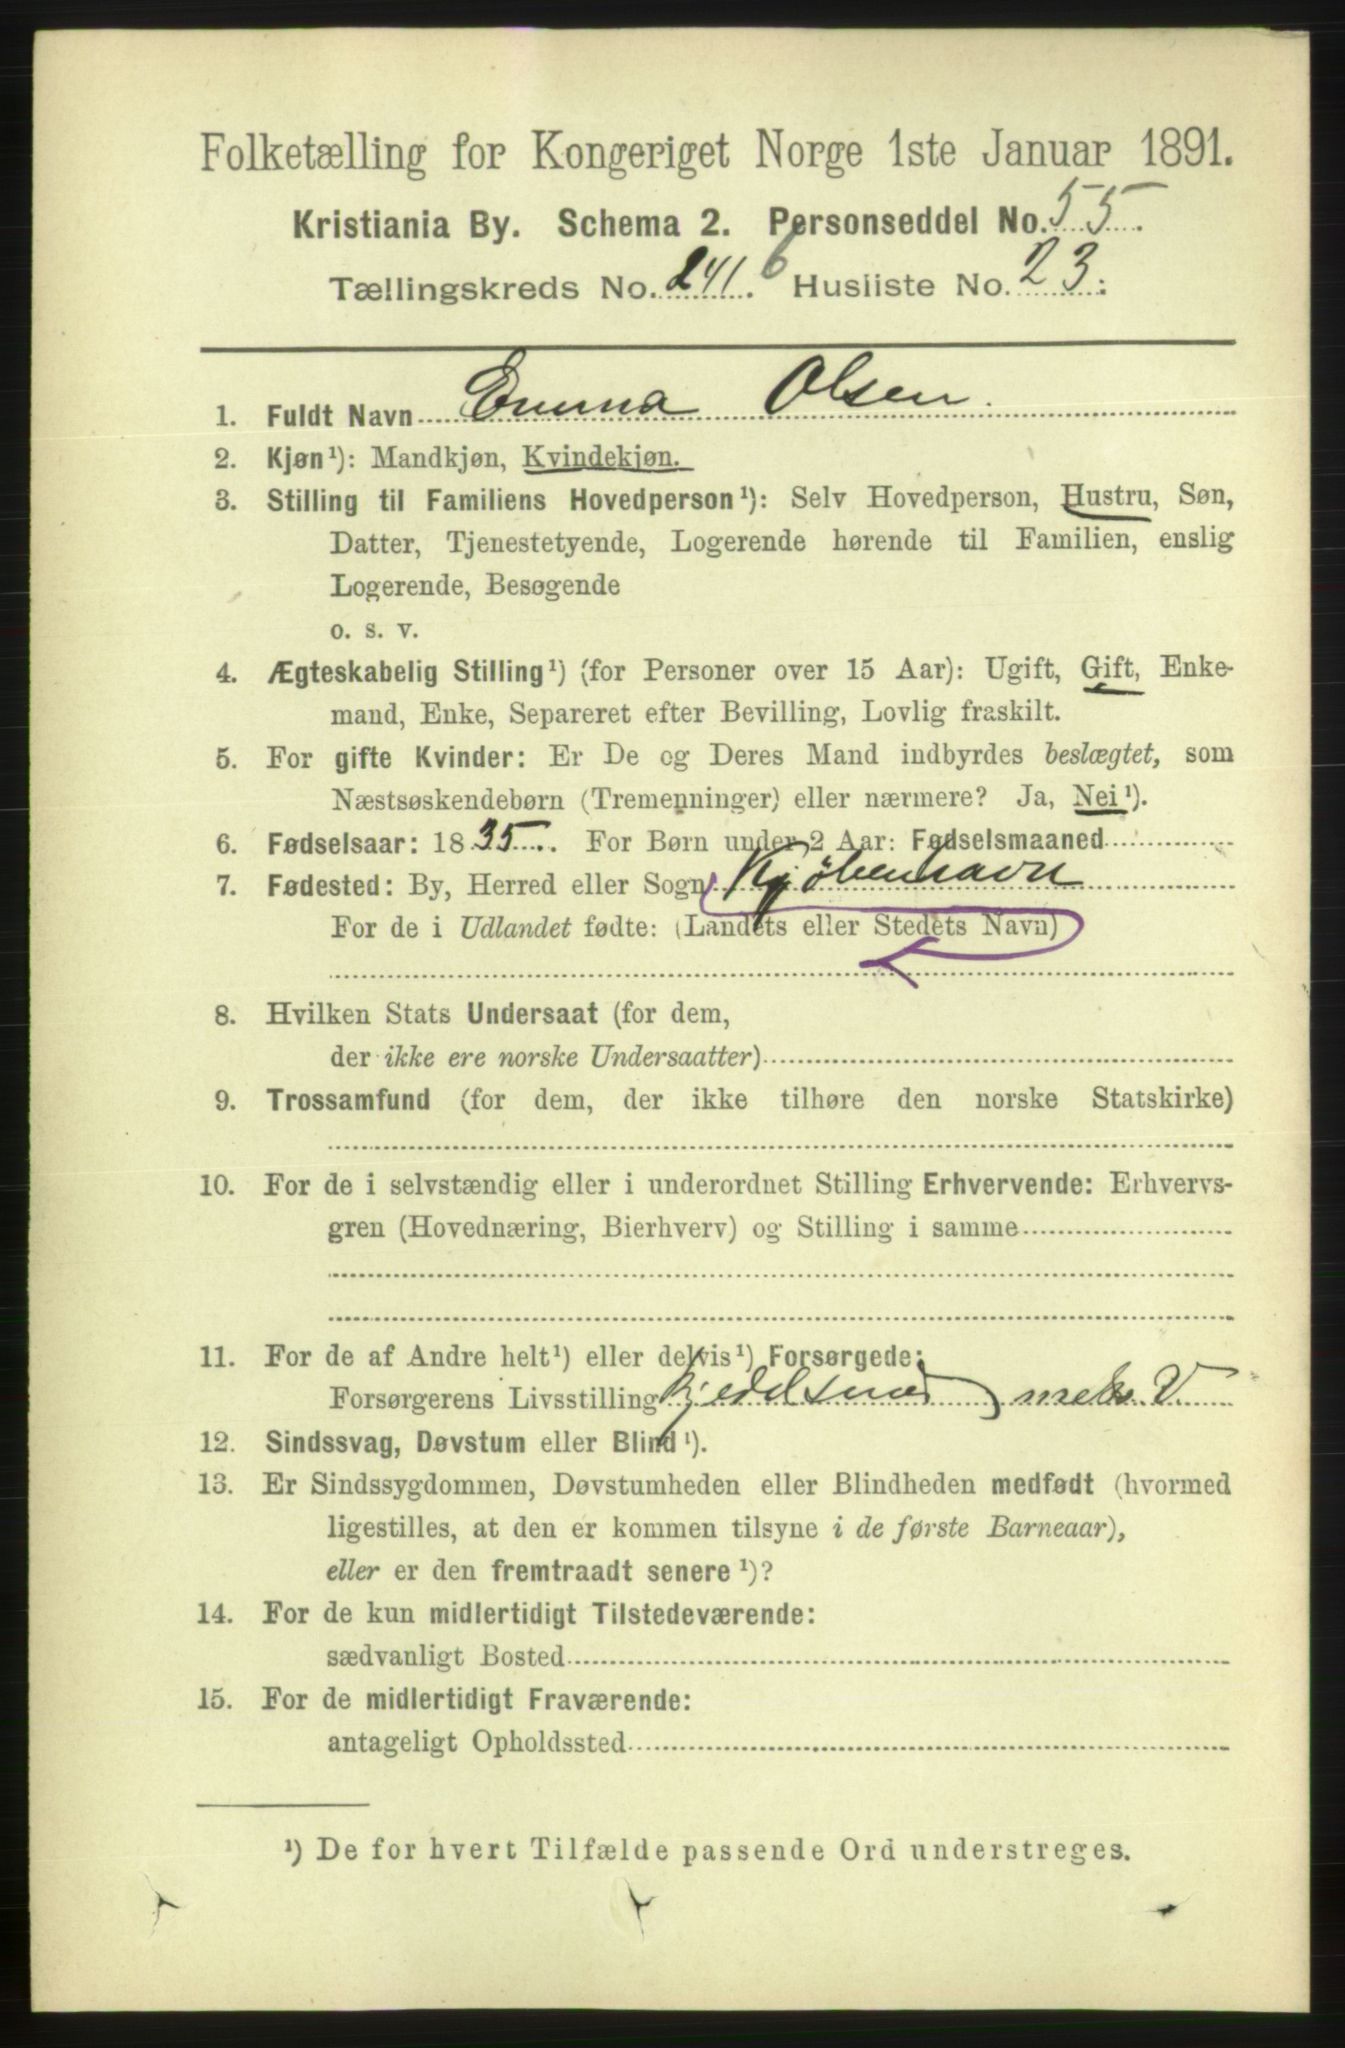 Folketælling for Kongeriget Norge 1ste Januar 1891.
Kristiania By. Schema 2. Personseddel No. 55.
Tællingskreds No. 241. 6 Husliste No. 23.
1. Fuldt Navn Emma Olsen.
2. Kjøn¹): Mandkjøn, Kvindekjøn.
3. Stilling til Familiens Hovedperson¹): Selv Hovedperson, Hustru, Søn,
Datter, Tjenestetyende, Logerende hørende til Familien, enslig
Logerende, Besøgende
o. s. v.
4. Ægteskabelig Stilling¹) (for Personer over 15 Aar): Ugift, Gift, Enke-
mand, Enke, Separeret efter Bevilling, Lovlig fraskilt.
5. For gifte Kvinder: Er De og Deres Mand indbyrdes beslægtet, som
Næstsøskendebørn (Tremenninger) eller nærmere? Ja, Nei¹).
6. Fødselsaar: 1835. For Børn under 2 Aar: Fødselsmaaned
7. Fødested: By, Herred eller Sogn Kjøbenhavn
For de i Udlandet fødte: (Landets eller Stedets Navn)
8. Hvilken Stats Undersaat (for dem,
der ikke ere norske Undersaatter)
9. Trossamfund (for dem, der ikke tilhøre den norske Statskirke)
10. For de i selvstændig eller i underordnet Stilling Erhvervende: Erhvervs-
gren (Hovednæring, Bierhverv) og Stilling i samme
11. For de af Andre helt¹) eller delvis¹) Forsørgede:
Forsørgerens Livsstilling Kjedelsmed mek. V.
12. Sindssvag, Døvstum eller Blind¹).
13. Er Sindssygdommen, Døvstumheden eller Blindheden medfødt (hvormed
ligestilles, at den er kommen tilsyne i de første Barneaar),
eller er den fremtraadt senere¹)?
14. For de kun midlertidigt Tilstedeværende:
sædvanligt Bosted
15. For de midlertidigt Fraværende:
antageligt Opholdssted
¹) De for hvert Tilfælde passende Ord understreges.